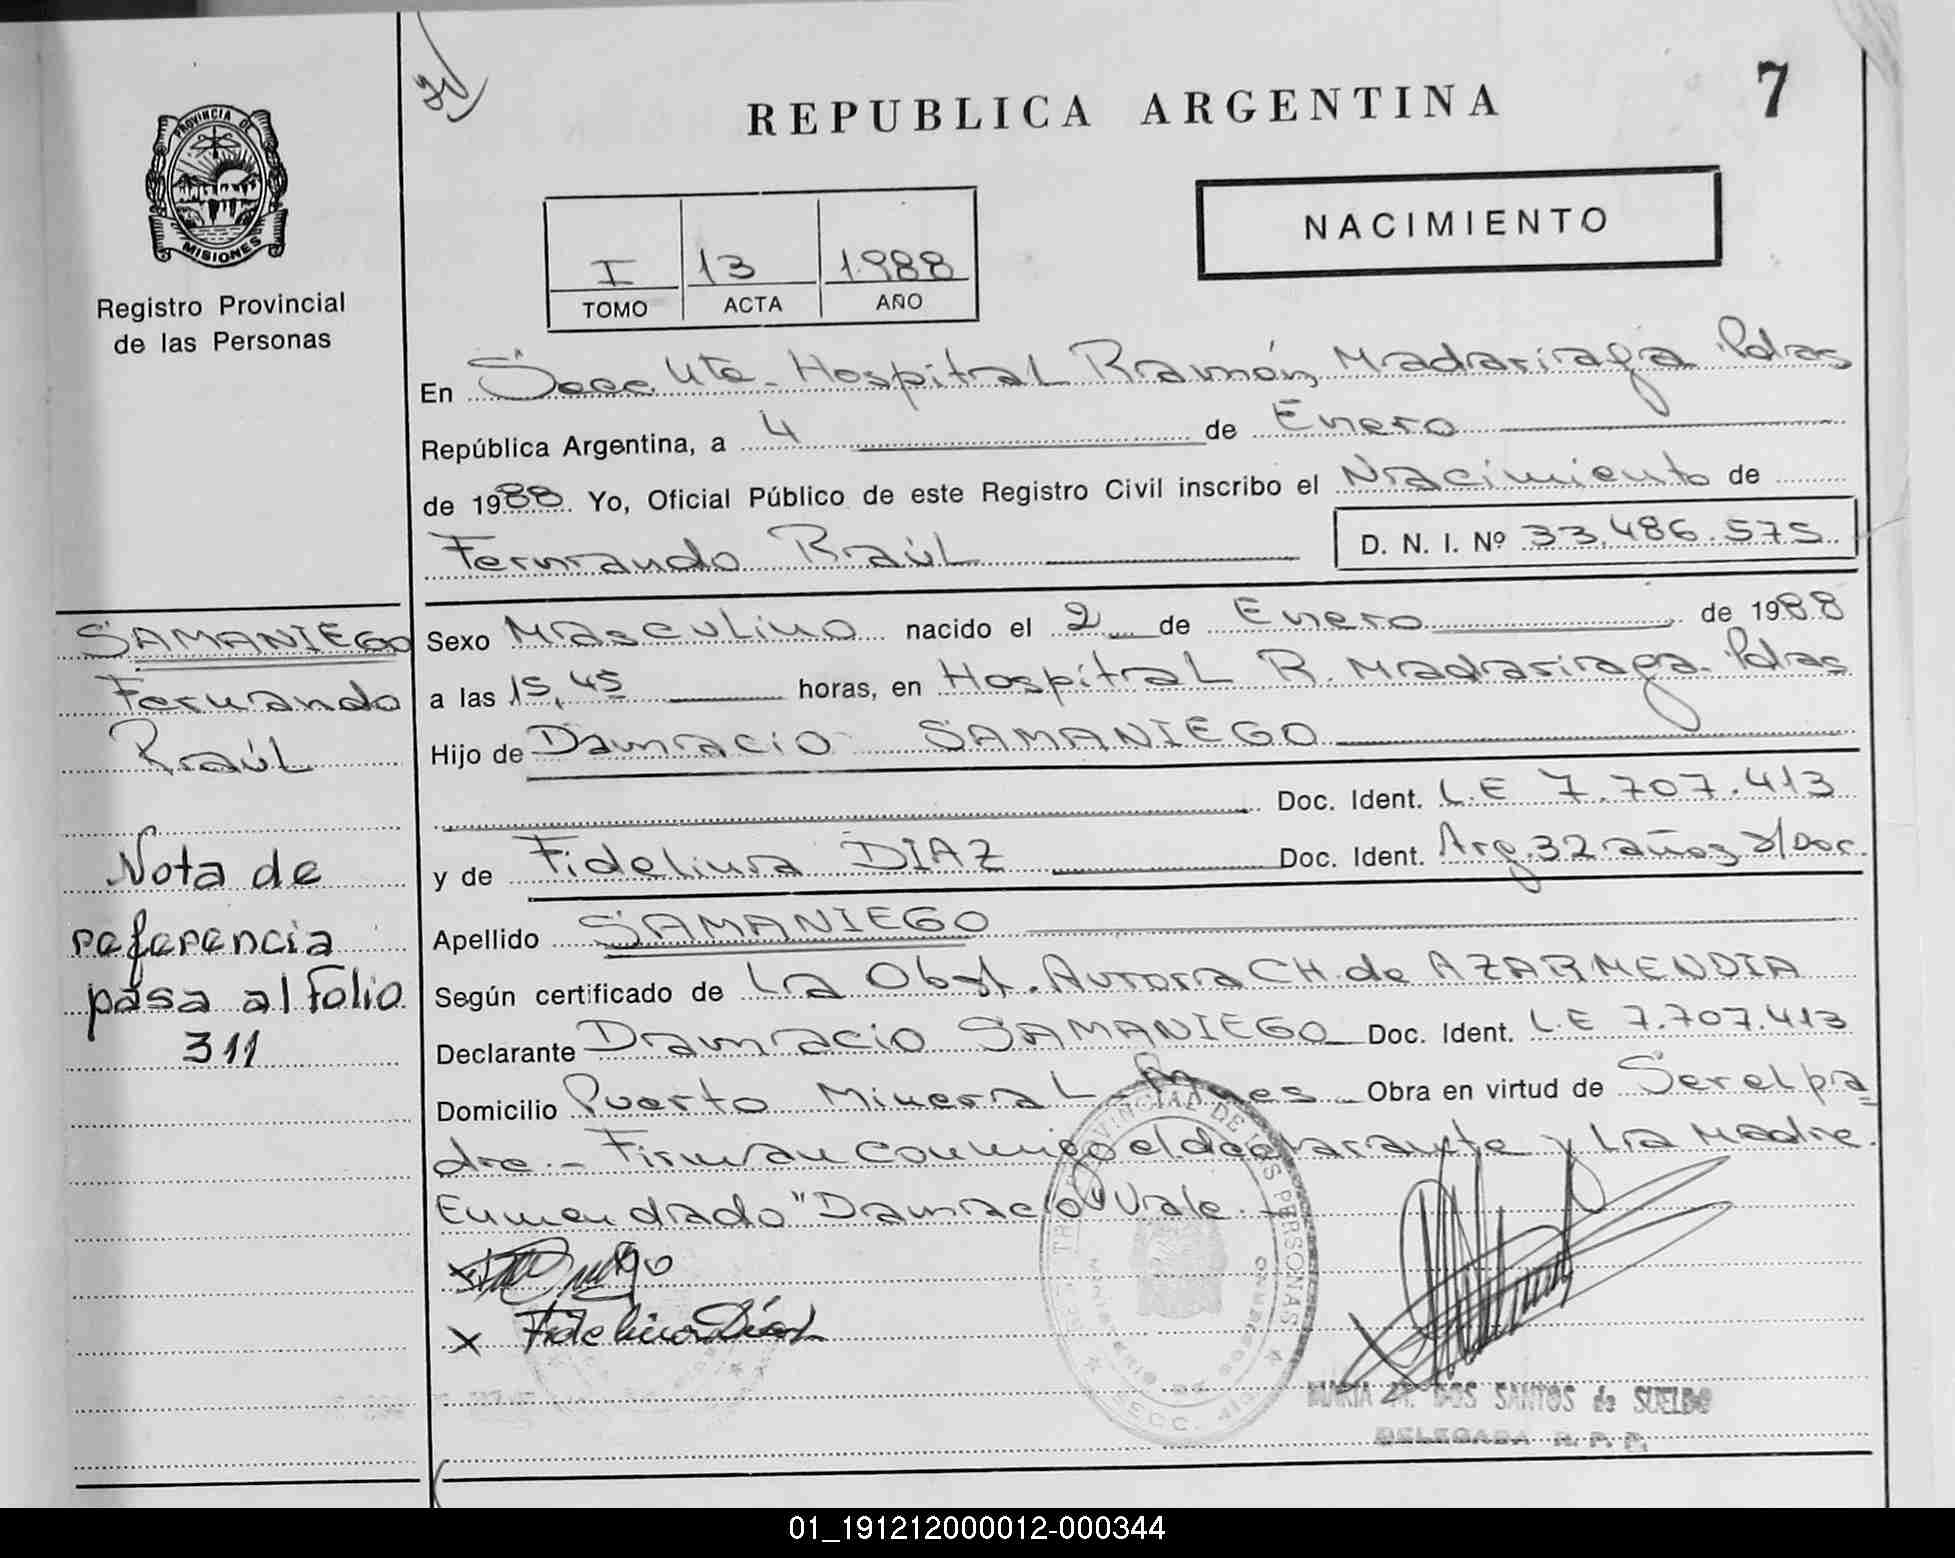 7
REPUBLICA ARGENTINA
PROVINCIA DE
MISIONES
Registro Provincial
de las Personas
NACIMIENTO
I 13 1988
TOMO ACTA AÑO
En Secc. Hospital Ramón Madariaga Pdas
República Argentina, a 4 de Enero
de 1988 Yo, Oficial Público de este Registro Civil inscribo el Nacimiento de
Fernando Raúl D. N. I. Nº 33.486.575
Sexo Masculino nacido el 2 de Enero de 1988
a las 15,45 horas, en Hospital R. Madariaga. Pdas
Hijo de Damacio SAMANIEGO
Doc. Ident. L.E 7.707.413
y de Fidelina DIAZ Doc. Ident. Arg. 32 años s/Doc.
Apellido SAMANIEGO
Según certificado de La Obst. Aurora CH. de AZARMENDIA
Declarante Damacio SAMANIEGO Doc. Ident. L.E 7.707.413
Domicilio Puerto Mineral Mnes Obra en virtud de Ser el pa
dre.- Firman conmigo el declarante y La Madre.
Enmendado "Damacio" Vale.-
x
x Fidelina Díaz
SAMANIEGO
Fernando
Raúl
Nota de
referencia
pasa al Folio
311
REGISTRO PROVINCIAL DE LAS PERSONAS
MINISTERIO DE GOBIERNO
SECC.
MARIA DOS SANTOS de SUELDO
DELEGADA R. P. P.
01_191212000012-000344